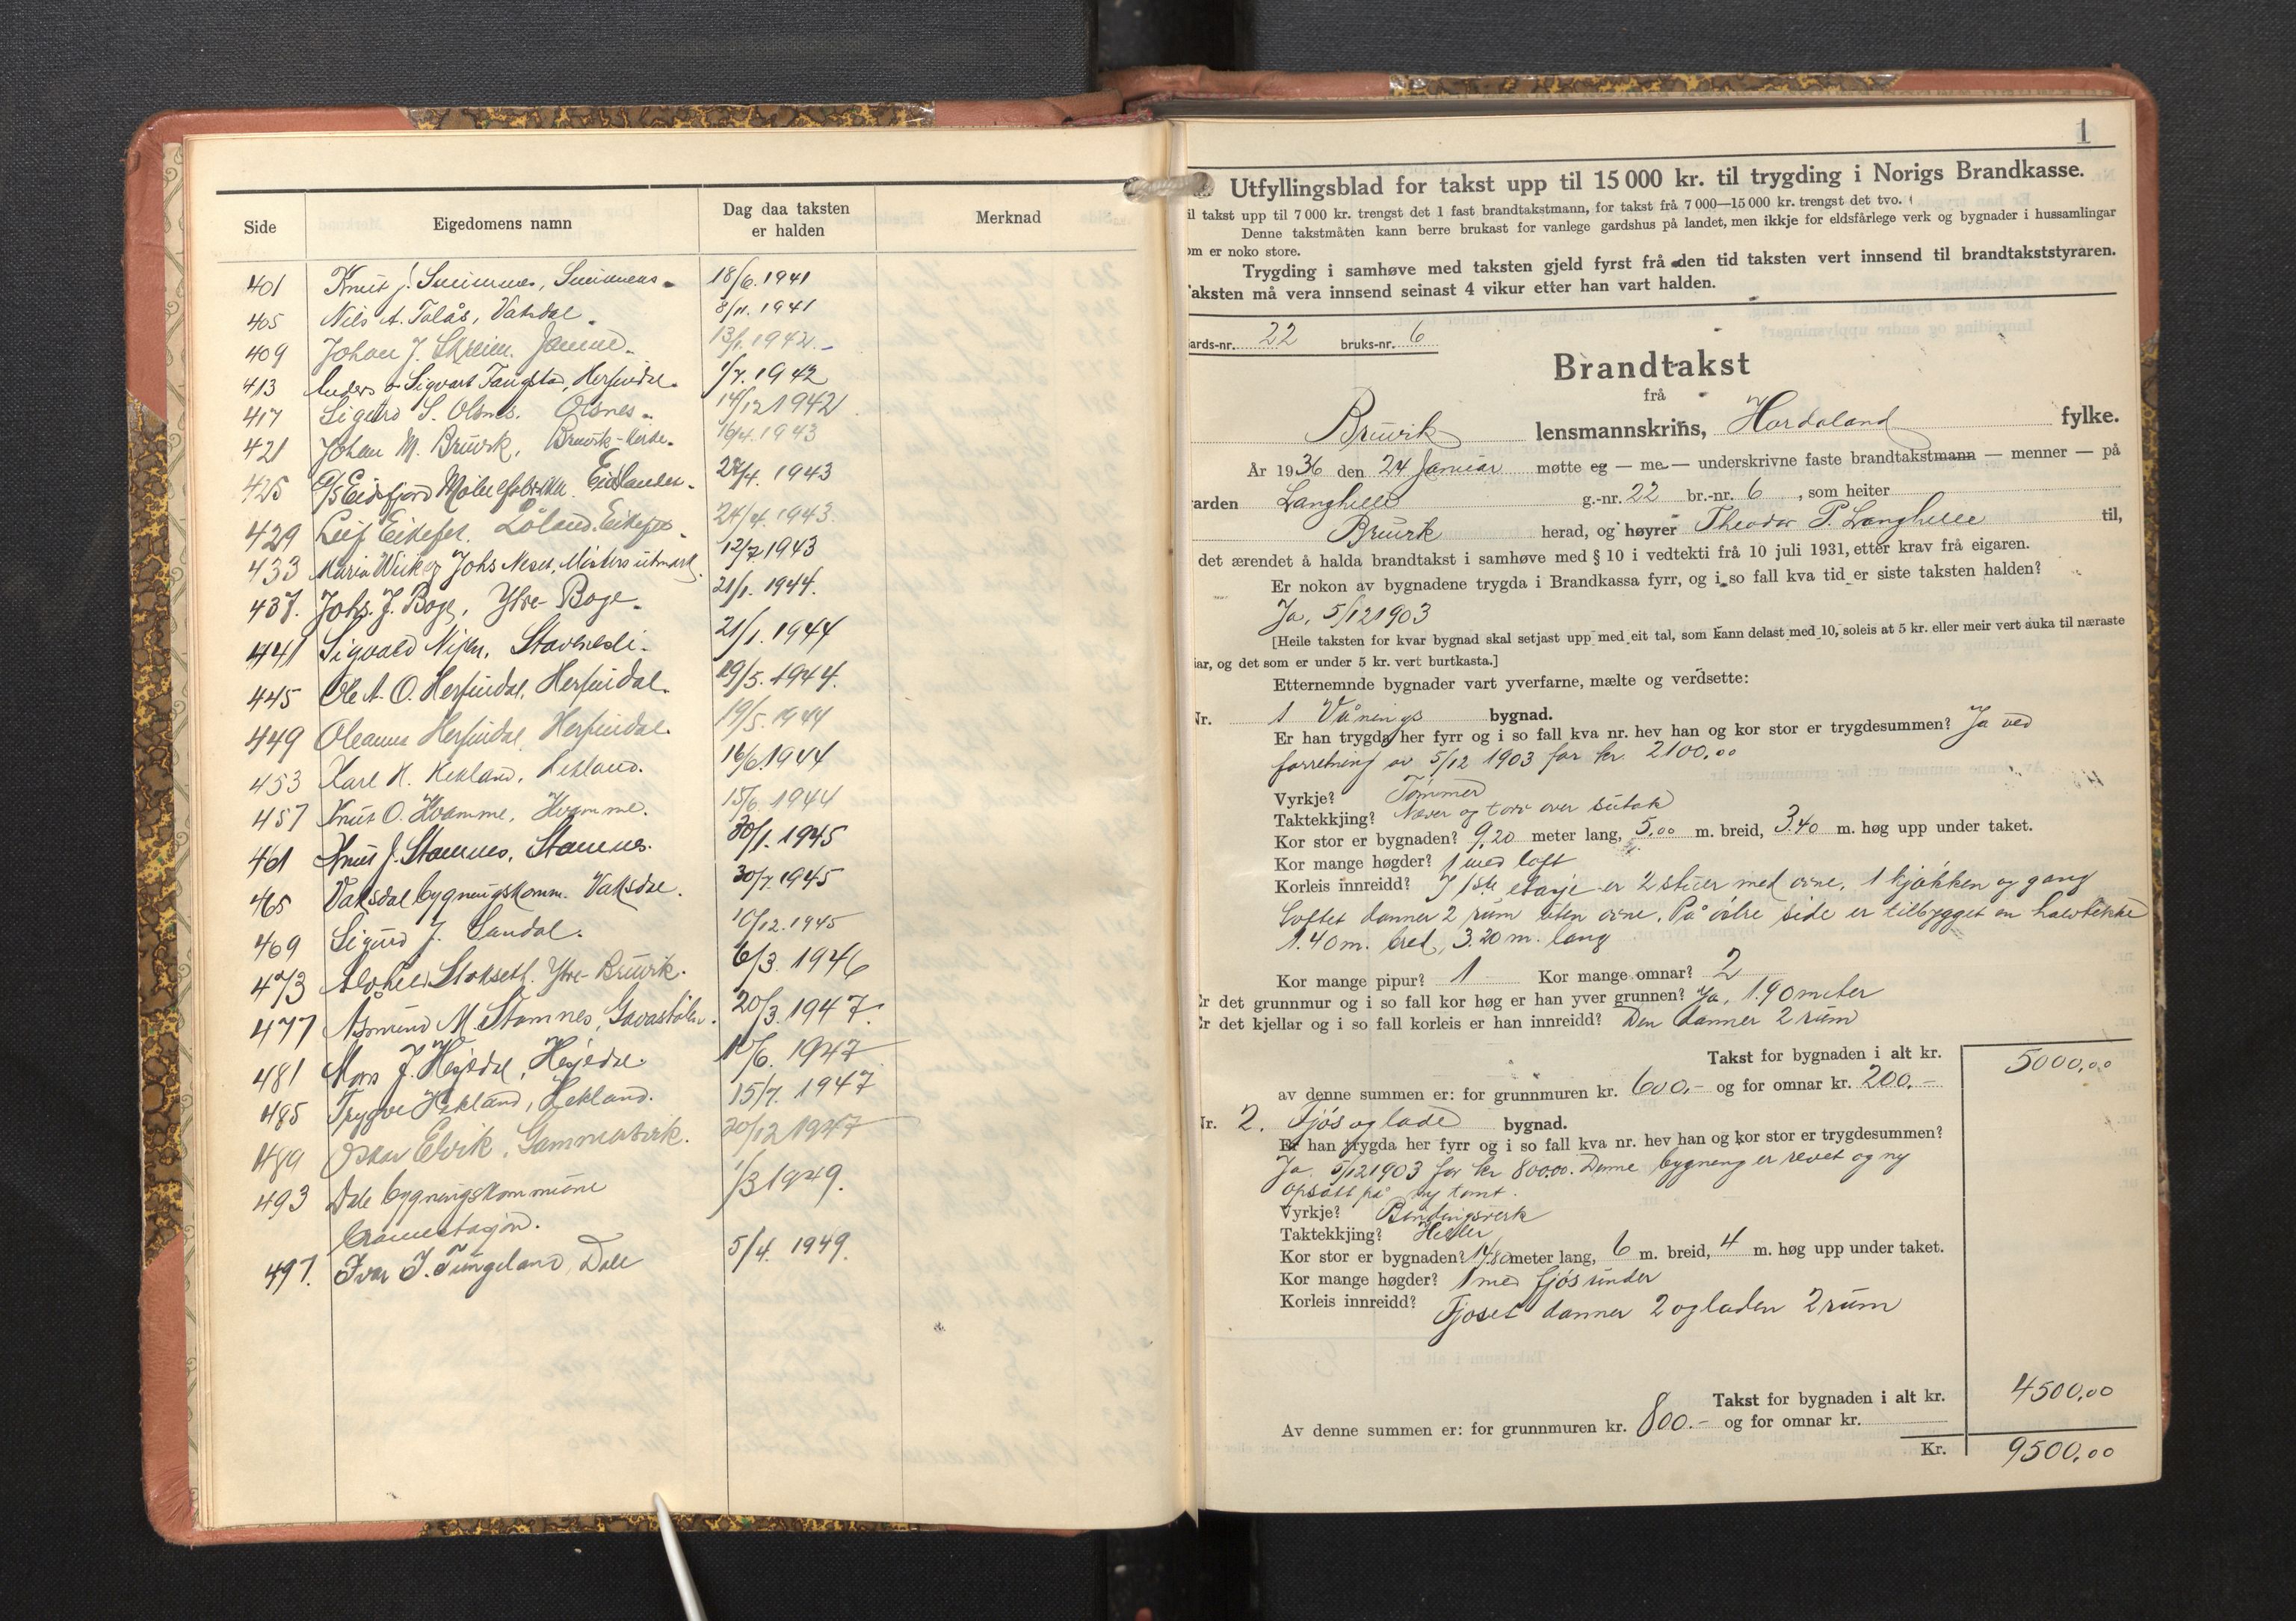 Side Eigedomens namn Dag daa taksten er halden Merknad
401 Knut J. 18/6. 1941
405 Nils A. Tolås, Vaksdal. 8/11. 1941
409 Johan J. Skreien. Jamne. 13/1. 1942.
413 Anders o Sigvart Fangstad, Herfindal. 1/7. 1942
417 Sigurd S. Olsnes. Olsnes. 14/12 1942
421 Johan M. Bruvik, Bruvik-Kirke. 16/4. 1943
425 A/S Eidsfjord Eidslandet. 27/4. 1943
429 Leif Eikefet. Löland. Eikefet. 24/4. 1943.
433 Maria Wiik og Johs Neset, Misters utmark. 12/7 1943
437. Johs. J. Boge, Ytre-Boge. 21/1. 1944.
441 Sigvald Nilsen, Stavenesli. 21/1. 1944
445 Ole A. O. Herfindal, Herfindal. 19/5. 1944.
449 Oleanna Herfindal, Herfindal. 19/5. 1944
453 Karl H. Hekland, Hekland. 16/6. 1944
457 Knut O. Hvamme, Hvamme. 15/6. 1944
461 Knut J. Stamnes, Stamnes. 30/1. 1945
465 Vaksdal bygningskomm. Vaksdal. 30/7. 1945
469 Sigurd J. Sandal. 10/12. 1945
473 Stokseth. Ytre-Bruvik. 6/3. 1946
477 Åsmund M. Stamnes, Gavastølen. 20/3. 1947.
481 Mons J. Hesjedal, Hesjedal. 10/6. 1947
485 Trygve Hekland, Hekland. 15/7. 1947
489 Oskar Elvik, Gammersvik. 20/12 1947
493 Dale bygningskommune 1/3 1949.
Brannstasjon.
497. Ivar I. Tungeland, Dale 5/4. 1949.
1
Utfyllingsblad for takst upp til 15 000 kr. til trygding i Norigs Brandkasse.
il takst upp til 7 000 kr. trengst det 1 fast brandtakstmann, for takst frå 7 000—15 000 kr. trengst det tvo.
Denne takstmåten kann berre brukast for vanlege gardshus på landet, men ikkje for eldsfårlege verk og bygnader i hussamlingar
om er noko store.
Trygding i samhøve med taksten gjeld fyrst frå den tid taksten vert innsend til brandtakststyraren.
aksten må vera innsend seinast 4 vikur etter han vart halden.
ards-nr. 22 bruks-nr. 6
Brandtakst
frå
Bruvik lensmannskrins, Hordaland fylke.
År 1936 den 24 Januar møtte eg — me — underskrivne faste brandtakstmann — menner — på
arden Langhelle g.-nr. 22 br.-nr. 6 , som heiter
Bruvik herad, og høyrer Theodor P. Langhelle til,
det ærendet å halda brandtakst i samhøve med § 10 i vedtekti frå 10 juli 1931, etter krav frå eigaren.
Er nokon av bygnadene trygda i Brandkassa fyrr, og i so fall kva tid er siste taksten halden?
Ja, 5/12 1903
[Heile taksten for kvar bygnad skal setjast upp med eit tal, som kann delast med 10, soleis at 5 kr. eller meir vert auka til næraste
iar, og det som er under 5 kr. vert burtkasta.]
Etternemnde bygnader vart yverfarne, mælte og verdsette:
Nr. 1 Vånings bygnad.
Er han trygda her fyrr og i so fall kva nr. hev han og kor stor er trygdesummen? Ja ved
forretning av 5/12 1903 for kr. 2100,00
Vyrkje? Tømmer
Taktekkjing? Næver og torv over sutak
Kor stor er bygnaden? 9,20 meter lang, 5,00 m. breid, 3.40 m. høg upp under taket.
Kor mange høgder? 1 med loft
Korleis innreidd? I 1ste etasje er 2 stuer med ovne, 1 kjøkken og gang
Loftet danner 2 rum uten ovne. På østre side er tilbygget en halvtekke
1.40 m. bred, 3.20 m. lang
Kor mange pipur? 1 Kor mange omnar? 2
Er det grunnmur og i so fall kor høg er han yver grunnen? Ja, 1.90 meter
Er det kjellar og i so fall korleis er han innreidd? Den danner 2 rum
Takst for bygnaden i alt kr. 5000,00
av denne summen er: for grunnmuren kr. 600.- og for omnar kr. 200.-
Nr. 2. Fjøs og lade bygnad.
Er han trygda her fyrr og i so fall kva nr. hev han og kor stor er trygdesummen?
Ja. 5/12 1903 for kr 800.00. Denne bygning er revet og ny
opsatt på ny tomt.
Vyrkje? Bindingsverk
Taktekkjing? Heller
Kor stor er bygnaden? 14.80 meter lang, 6 m. breid, 4 m. høg upp under taket.
Kor mange høgder? 1 med fjøs under
Korleis innreidd? Fjøset danner 2 og laden 2 rum
Takst for bygnaden i alt kr. 4500,00
Av denne summen er: for grunnmuren kr. 800.- og for omnar kr.
Kr. 9500,00